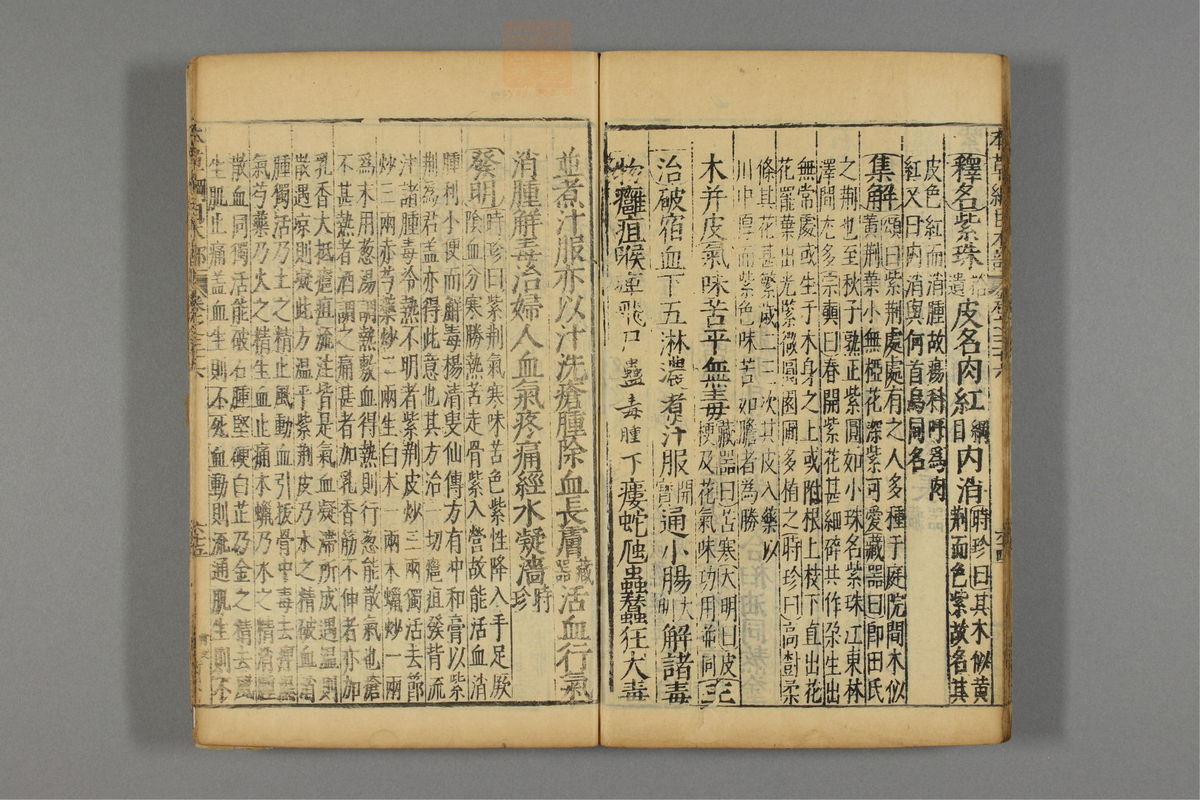 釋名紫珠拾遺皮名肉紅綱目内消時珍曰其木似黃
荆而色紫故名其
皮色紅而消腫故瘍科呼為肉
紅又曰内消與何首烏同名
集解頌曰紫荆處處有之人多種于庭院間木似
黃荆葉小無椏花深紫可愛藏器曰即田氏
之荆也至秋子熟正紫圓如小珠名紫珠江東林
澤間尤多宗奭曰春開紫花甚細碎共作朶生出
無常處或生于木身之上或附根上枝下直出花
花罷葉出光紫微圓園圃多植之時珍曰高樹柔
條其花甚繁歲二三次其皮入藥以
川中厚而紫色味苦如膽者為勝
木并皮氣味苦平無毒藏器曰苦寒大明曰皮
梗及花氣味功用並同主
治破宿血下五淋濃煮汁服開寶通小腸大明解諸毒
物癰疽喉痺飛尸蠱毒腫下瘻蛇虺蟲蠶狂犬毒
並煮汁服亦以汁洗瘡腫除血長膚藏器活血行氣
消腫解毒治婦人血氣疼痛經水凝濇時珍
發明時珍曰紫荆氣寒味苦色紫性降入手足厥
陰血分寒勝熱苦走骨紫入營故能活血消
腫利小便而解毒楊清叟仙傳方有冲和膏以紫
荆為君盖亦得此意也其方治一切癰疽發背流
注諸腫毒冷熱不明者紫荆皮炒三兩獨活去節
炒三兩赤芍藥炒二兩生白木一兩木蠟炒一兩
為末用葱湯調熱敷血得熱則行葱能散氣也瘡
不甚熱者酒調之痛甚者加乳香筋不伸者亦加
乳香大抵癰疽流注皆是氣血凝滯所成遇温則
散遇凉則凝此方温平紫荆皮乃木之精破血消
腫獨活乃土之精止風動血引拔骨中毒去痺濕
氣芍藥乃火之精生血止痛木蠟乃水之精消腫
散血同獨活能破石腫堅硬白芷乃金之精去風
生肌止痛盖血生則不死血動則流通肌生則不